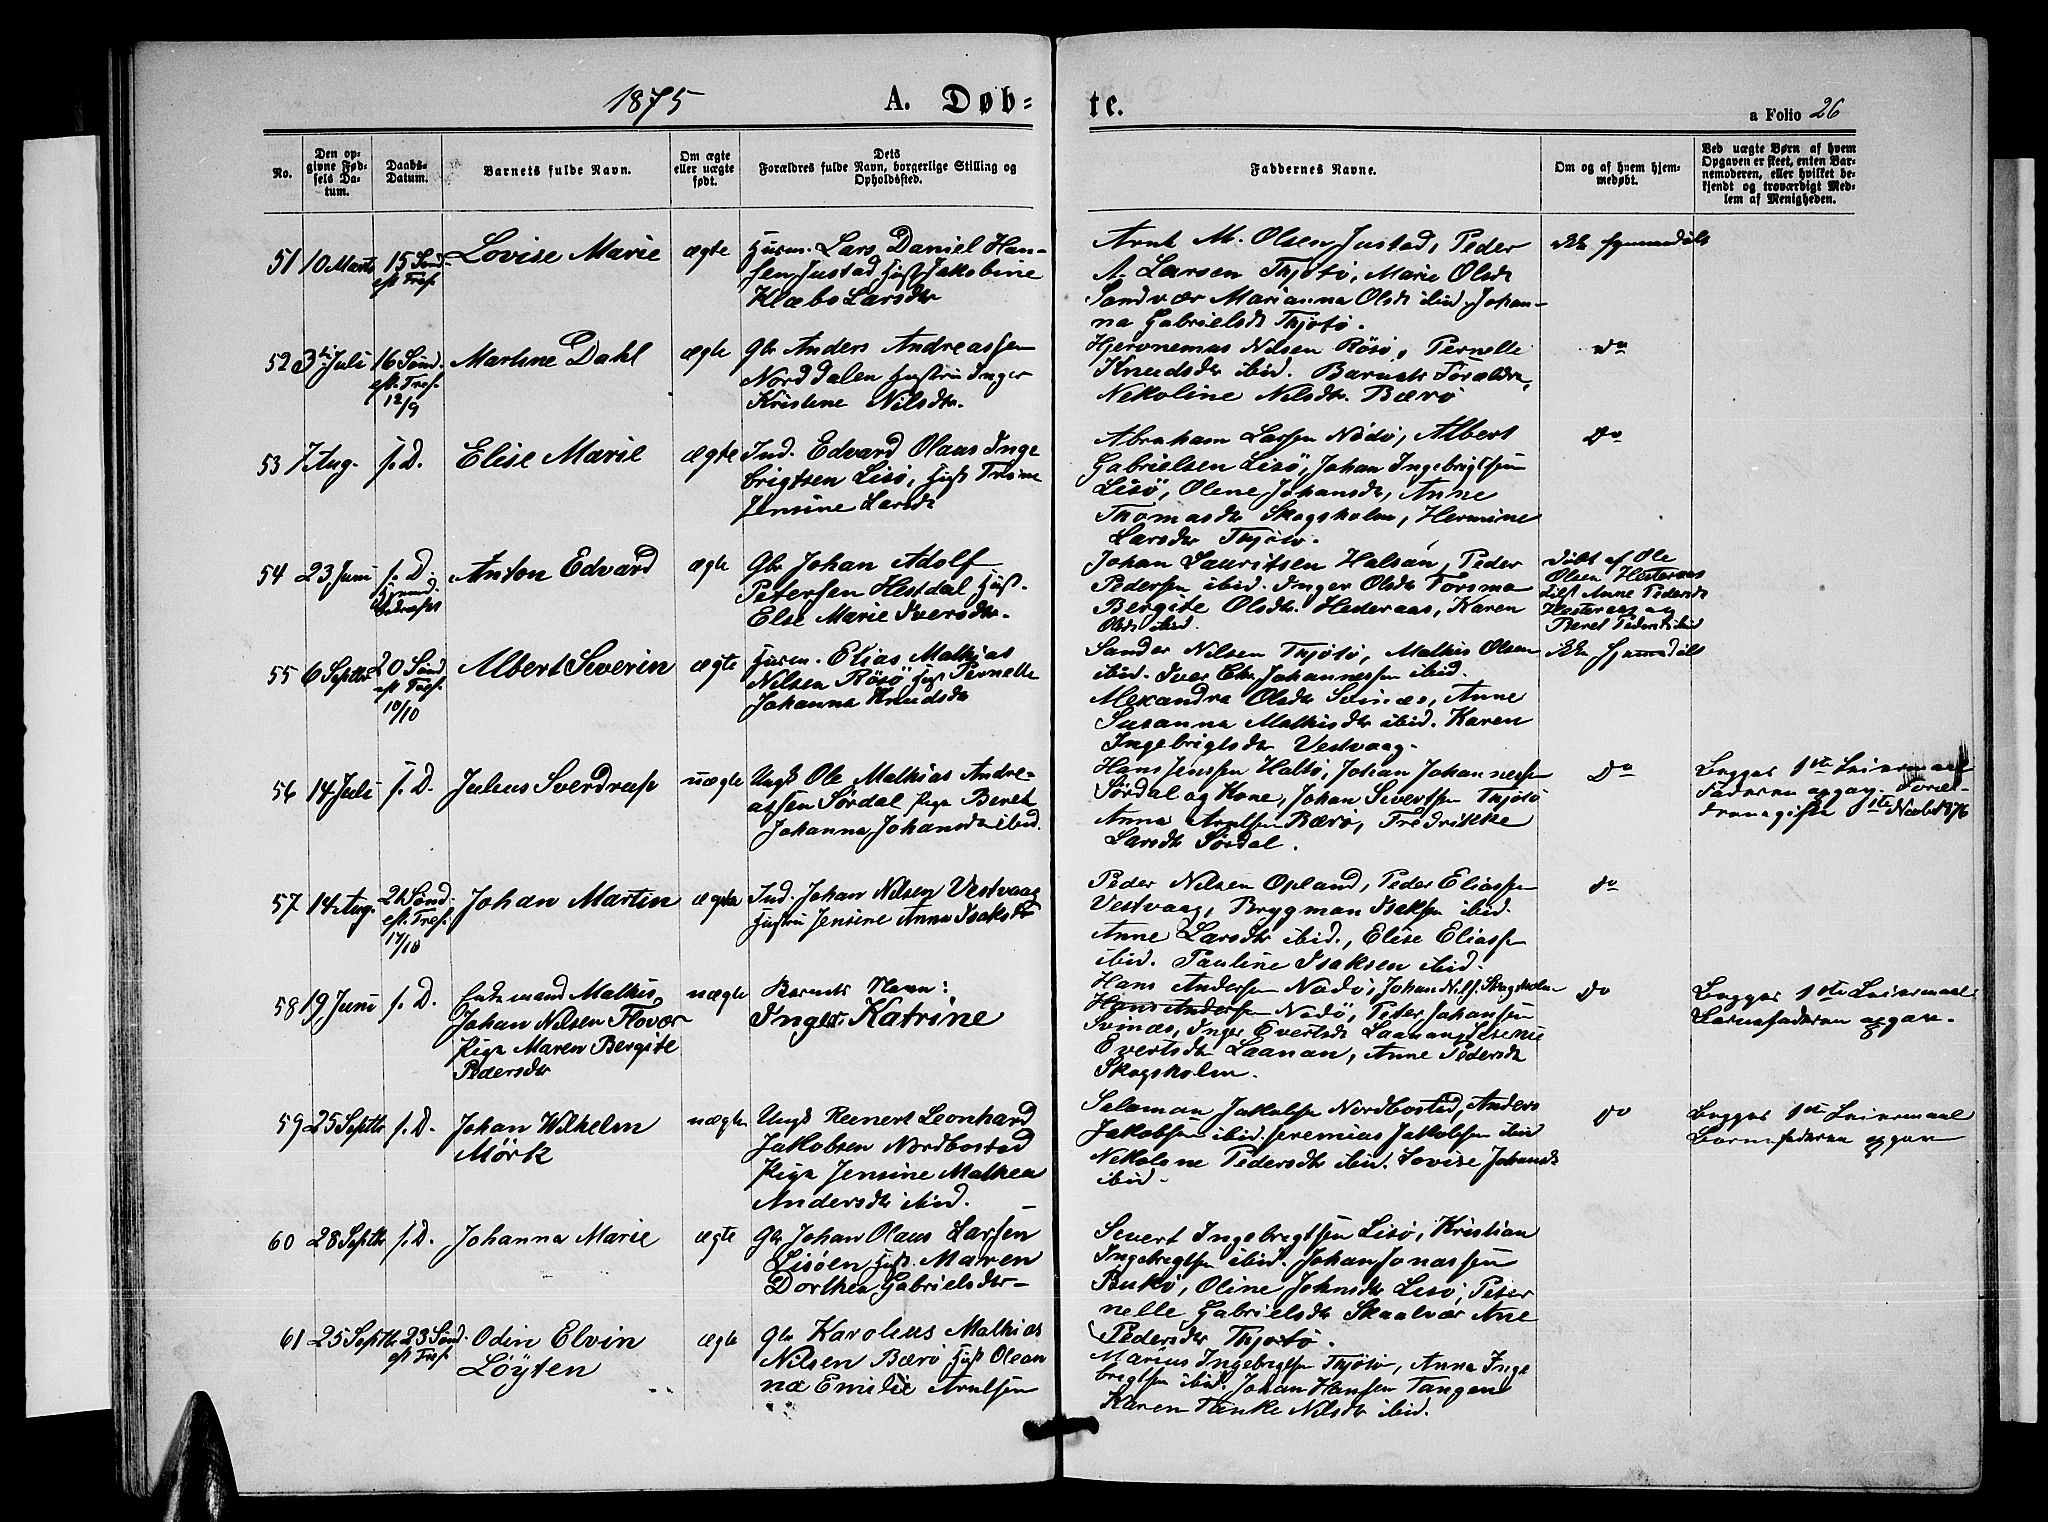 1875
A. Døb=
te.
a Folio 26
No.
Den op=
givne Fød=
sels Da=
tum.
Daabs=
Datum.
Barnets fulde Navn.
Om ægte
eller uægte
født.
Dets
Forældres fulde Navn, borgerlige Stilling og
Opholdssted.
Faddernes Navne.
Om og af hvem hjem=
medøbt.
Ved uægte Børn af hvem
Opgaven er skeet, enten Bar=
nemoderen, eller hvilket be=
kjendt og troværdigt Med=
lem af Menigheden.
51 10 Marts 15 Sønd
eft Tref.
Lovise Marie
ægte
Husm. Lars Daniel Han-
sen Justad Hust Jakobine
Klæbo Larsdtr
Arnt M. Olsen Justad, Peder
A. Larsen Thjøtø, Marie Olsdtr
Sandvær Marianna Olsdtr ibid, Johan-
na Gabrielsdtr Thjøtø.
ikke hjemmedøbt
52 3die Juli 16 Sønd
eft. Tref.
12/9
Martine Dahl
ægte
Gbr Anders Andreassen
Norddalen Hustru Inger
Kristine Nilsdtr.
Hjeronemus Nilsen Rösö, Pernelle
Knudsdtr ibid. Barnets Forældre,
Nekoline Nilsdtr. Bærø
Do
53 7 Aug. s. D.
Elise Marie
ægte
Ind. Edvard Olaus Inge
brigtsen Lisö, Hust Trine
Jensine Larsdtr
Abraham Larsen Nödö, Albert
Gabrielsen Lisö, Johan Ingebrigtsen
Lisö, Olene Johansdtr, Anne
Thomasdtr Skogsholm, Hermine
Larsdtr Thjøtø.
Do
54 23 Juni s. D.
Anton Edvard
ægte
Gbr Johan Adolf
Petersen Hestdal Hust.
Else Marie Iversdtr.
Johan Lauritsen Halsan, Peder
Pedersen ibid. Inger Olsdtr Forsmo
Bergite Olsdtr. Hederaas, Karen
Olsdtr ibid.
døbt af Ole
Olsen Hesteraas
Anne Pedersdtr
Hesteraas og
Beret Pedersdtr ibid
55 6 Septbr 20 Sønd
eft Tref.
10/10
Albert Severin
ægte
Husm. Elias Mathias
Nilsen Rösö Hust Pernelle
Johanna Knudsdtr
Sander Nilsen Thjøtø, Mathis Olsen
ibid. Iver Chr. Johannessen ibid.
Alexandra Olsdtr Svines, Anne
Susanna Mathisdtr ibid. Karen
Ingebrigtsdtr Vestvaag.
ikke hjemmedøbt
56 14 Juli s. D.
Julius Sverdrup
uægte
Ungk Ole Mathias Andre-
assen Sørdal Pige Beret
Johanna Johansdtr ibid.
Hans Jenssen Haltö, Johan Johannessen
Sørdal og Kone, Johan Sivertsen Thjøtø
Anna Arntsen Bærø, Fredrikke
Larsdtr Sørdal.
Do
Begges 1ste Leiermaal
Faderen opgav. Foræl-
drene gifte 1ste Novb 1876
57 14 Aug. 21 Sønd.
eft. Tref.
17/10
Johan Martin
ægte
Ind. Johan Nilsen Vestvaag
Hustru Jensine Anna Isaksdtr
Peder Nilsen Opland, Peder Eliassen
Vestvaag, Brygman Isaksen ibid.
Anne Larsdtr ibid., Elise Eliassen
ibid. Pauline Isaksen ibid.
do
58 19 Juni s. D.
Enkemand Mathis
Johan Nilsen Flovær
Pige Maren Bergite
Pedersdtr
uægte
Barnets Navn:
Inger Katrine
Hans Andersen Nodö, Johan Nils. Skogsholm
Hans Andersen Nodö, Peter Johansen
Svinæs, Inger Evertsdtr Laanan,
Evertsdtr Laanan, Anne Pedersdtr
Skogsholm.
do
Begges 1ste Leiermaal
Barnefaderen opgav.
59 25 Septbr s. D.
Johan Wilhelm
Mörk
uægte
Ungk Reenert Leonhard
Jakobsen Nordbostad
Pige Jensine Mathea
Andersdtr ibid.
Salamon Jakobsen Nordbostad, Anders
Jakobsen ibid. Jeremias Jakobsen ibid
Nekoline Pedersdtr ibid. Lovise Johansdtr
ibid.
do
Begges 1ste Leiermaal
Barnefaderen opgav
60 28 Septbr s. D.
Johanna Marie
ægte
Gbr Johan Olaus Larsen
Lisöen Hust. Maren
Dorthea Gabrielsdtr.
Severt Ingebrigtsen Lisö, Kristian
Ingebrigtsen ibid. Johan Jonassen
Bukö, Oline Johnsdtr Lisö, Peter
nelle Gabrielsdtr Skaalvær Ane
Pedersdtr Thjøtø.
61 25 Septbr 23 Sønd.
eft Tref.
Odin Elvin
Löyten
ægte
Gbr Karolius Mathias
Nilsen Bærø Hust Olean
na Emilie Arntsen
Marius Ingebrigtsen Thjøtø, Anna Inge
brigtsen ibid. Johan Hansen Tangen
Karen Tanke Nilsdtr ibid.